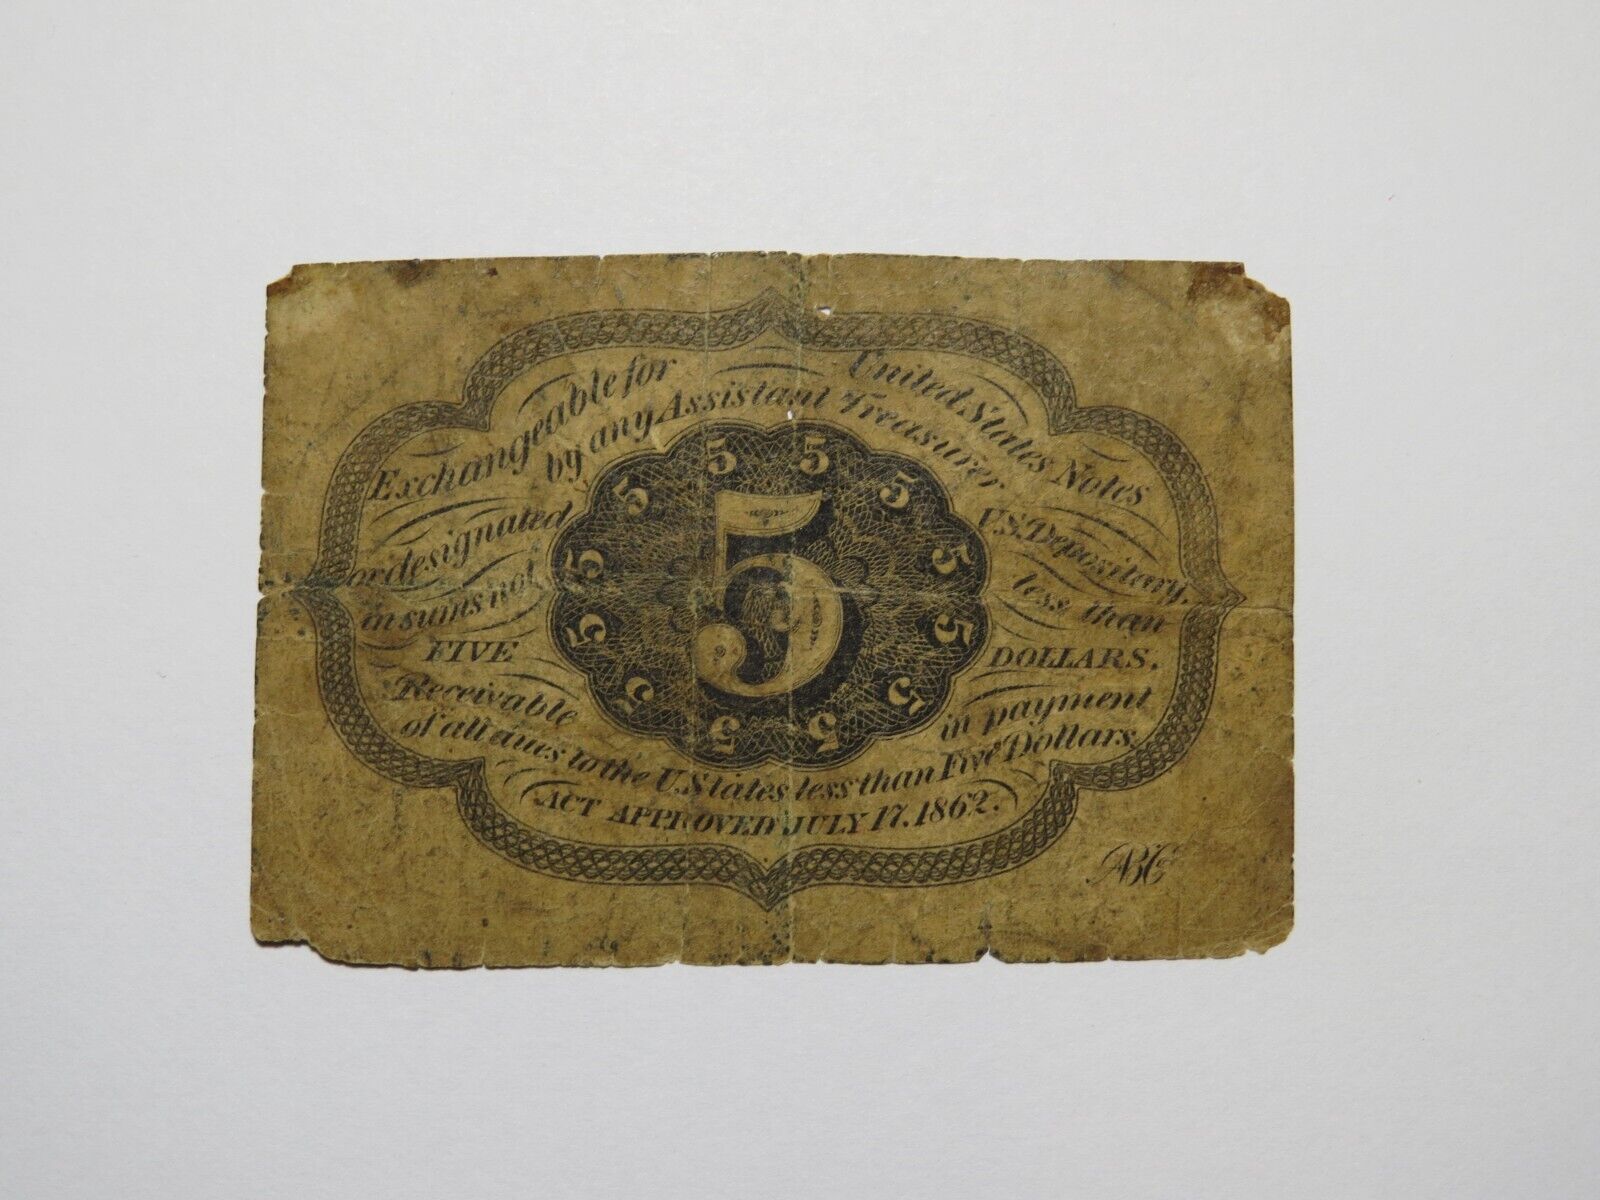 Exchangeable for United States Notes
by any Assistant Treasurer
or designated U.S. Depositary,
in sums not less than
FIVE DOLLARS.
Receivable in payment
of all dues to the U. States less than Five Dollars.
ACT APPROVED JULY 17. 1862.
5 5 5 5 5 5 5 5 5 5 5 5
5
ABCo